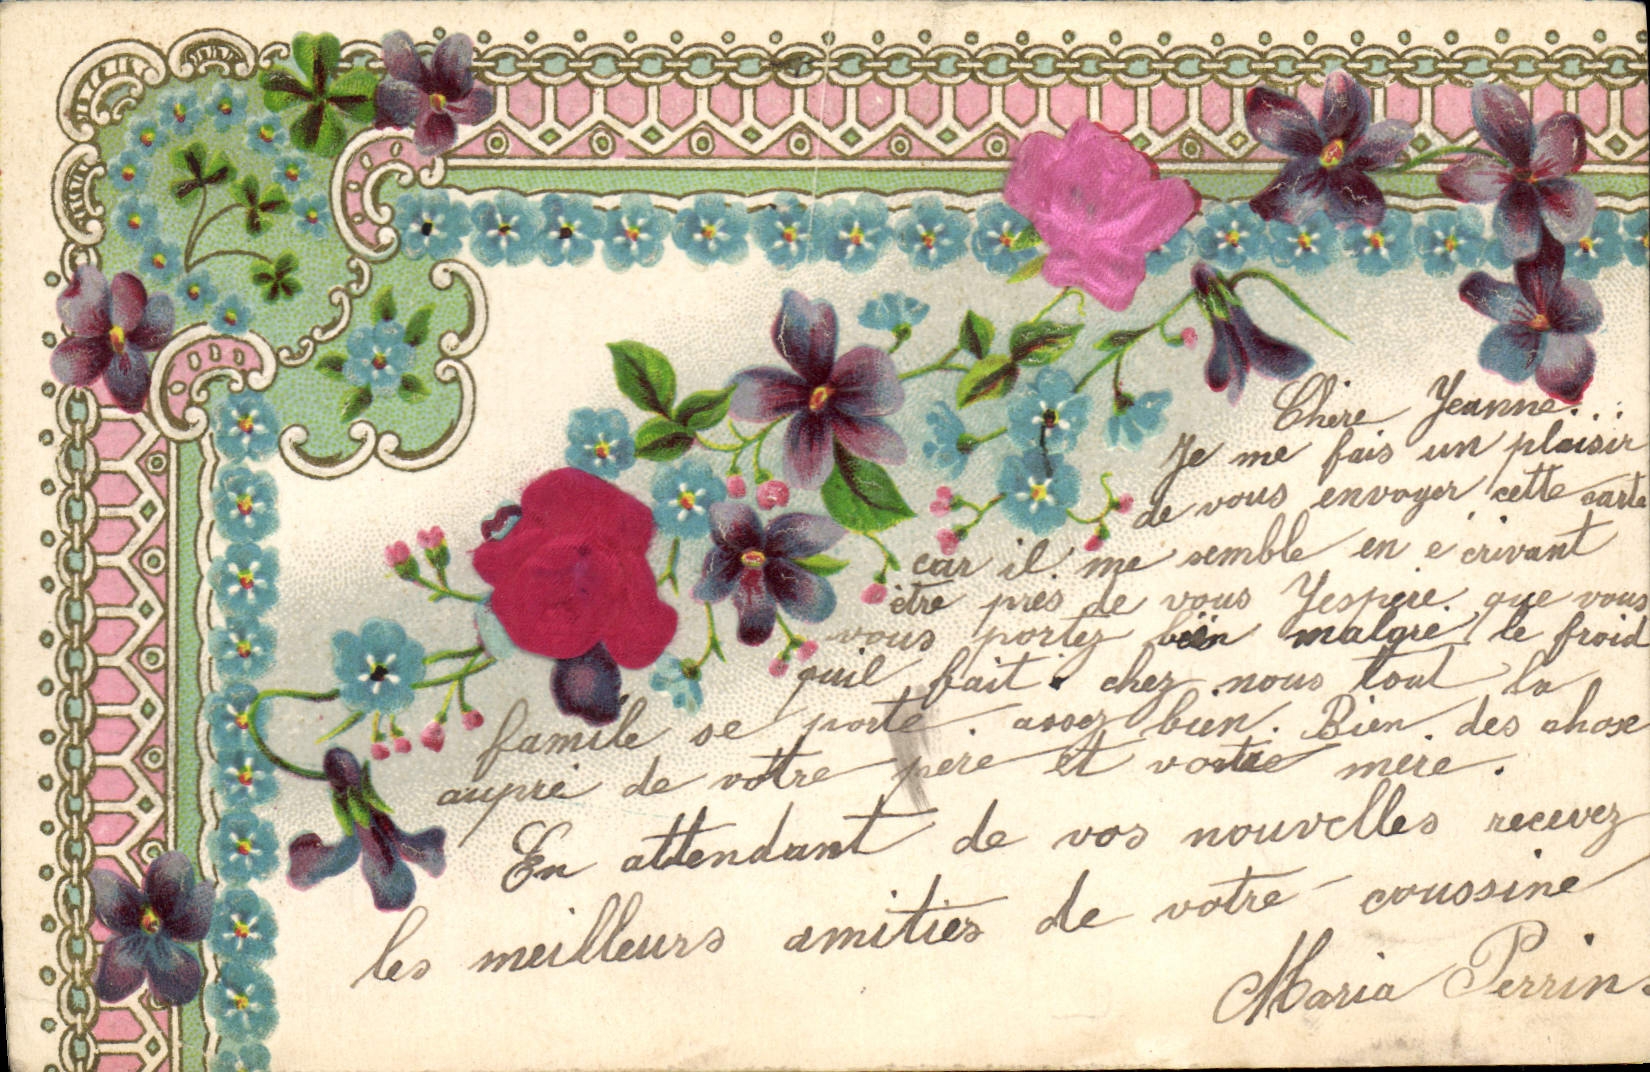 Chère Jeanne...
Je me fais un plaisir
de vous envoyer cette carte
car il me semble en écrivant
être près de vous J'espère que vous
vous portez bien malgre le froid
quil fait. chez nous tout la
famile se porte assez bien. Bien des chose
aupré de votre père et votre mère.
En attendant de vos nouvelles recevez
les meilleurs amitiés de votre coussine
Maria Perrin.